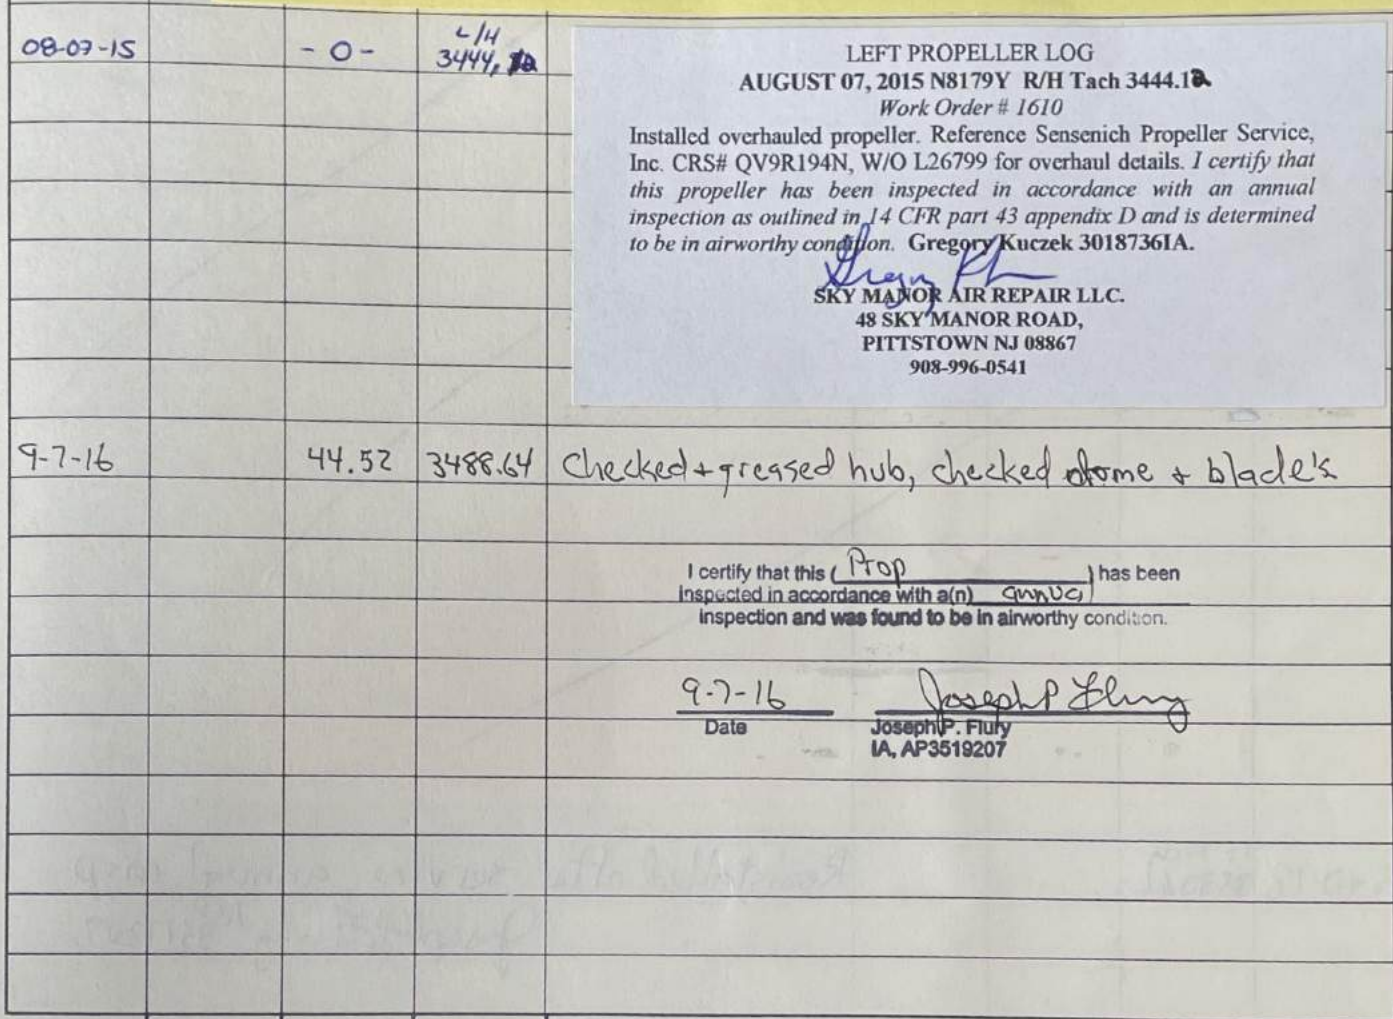 08-07-15 - 0 - L/H 3444.12
LEFT PROPELLER LOG
AUGUST 07, 2015 N8179Y R/H Tach 3444.12
Work Order # 1610
Installed overhauled propeller. Reference Sensenich Propeller Service,
Inc. CRS# QV9R194N, W/O L26799 for overhaul details. I certify that
this propeller has been inspected in accordance with an annual
inspection as outlined in 14 CFR part 43 appendix D and is determined
to be in airworthy condition. Gregory Kuczek 3018736IA.
SKY MANOR AIR REPAIR LLC.
48 SKY MANOR ROAD,
PITTSTOWN NJ 08867
908-996-0541
9-7-16 44.52 3488.64 Checked + greased hub, checked dome + blade's
I certify that this ( Prop ) has been
inspected in accordance with a(n) annual
inspection and was found to be in airworthy condition.
9-7-16 Joseph P Flury
Date Joseph P. Flury
IA, AP3519207